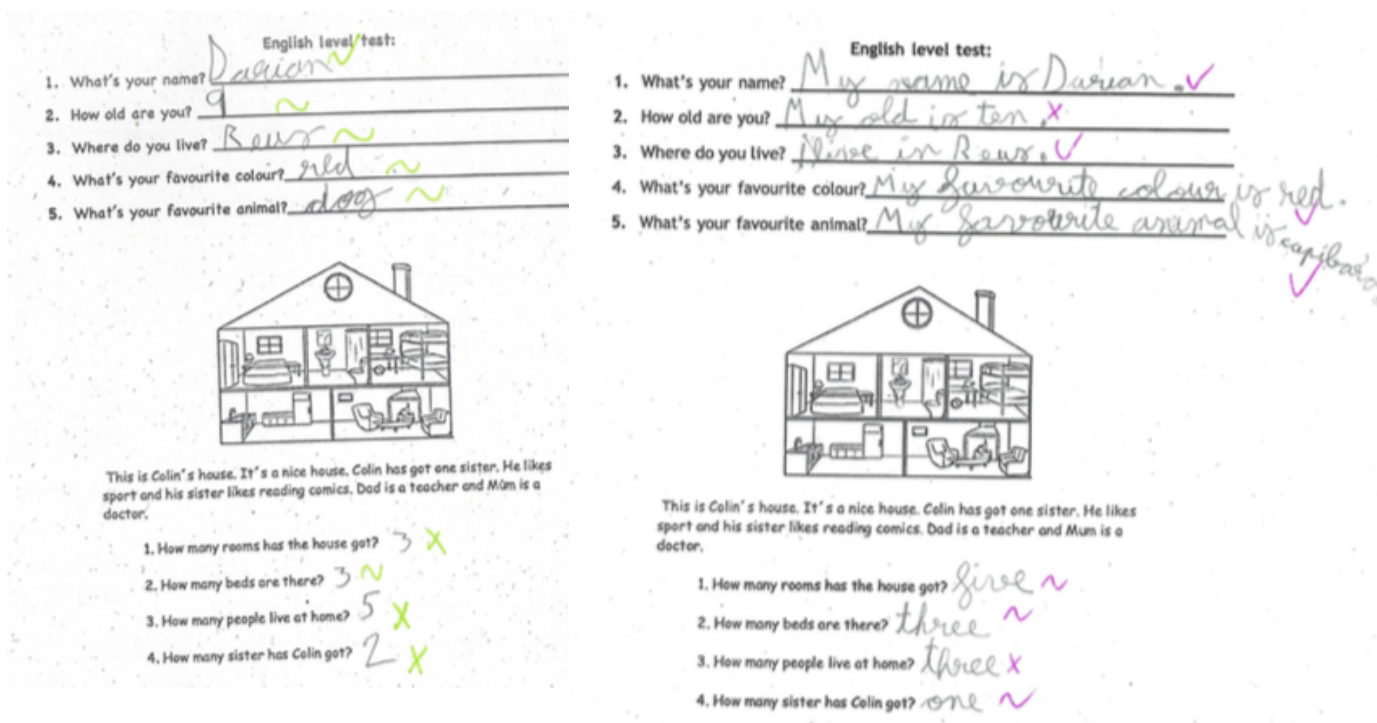 English level test:
1. What's your name? Darian
2. How old are you? 9
3. Where do you live? Reus
4. What's your favourite colour? red
5. What's your favourite animal? dog
This is Colin's house. It's a nice house. Colin has got one sister. He likes
sport and his sister likes reading comics. Dad is a teacher and Mum is a
doctor.
1. How many rooms has the house got? 3
2. How many beds are there? 3
3. How many people live at home? 5
4. How many sister has Colin got? 2
English level test:
1. What's your name? My name is Darian.
2. How old are you? My old is ten.
3. Where do you live? I live in Reus.
4. What's your favourite colour? My favourite colour is red.
5. What's your favourite animal? My favourite animal is capibara
This is Colin's house. It's a nice house. Colin has got one sister. He likes
sport and his sister likes reading comics. Dad is a teacher and Mum is a
doctor.
1. How many rooms has the house got? five
2. How many beds are there? three
3. How many people live at home? three
4. How many sister has Colin got? one